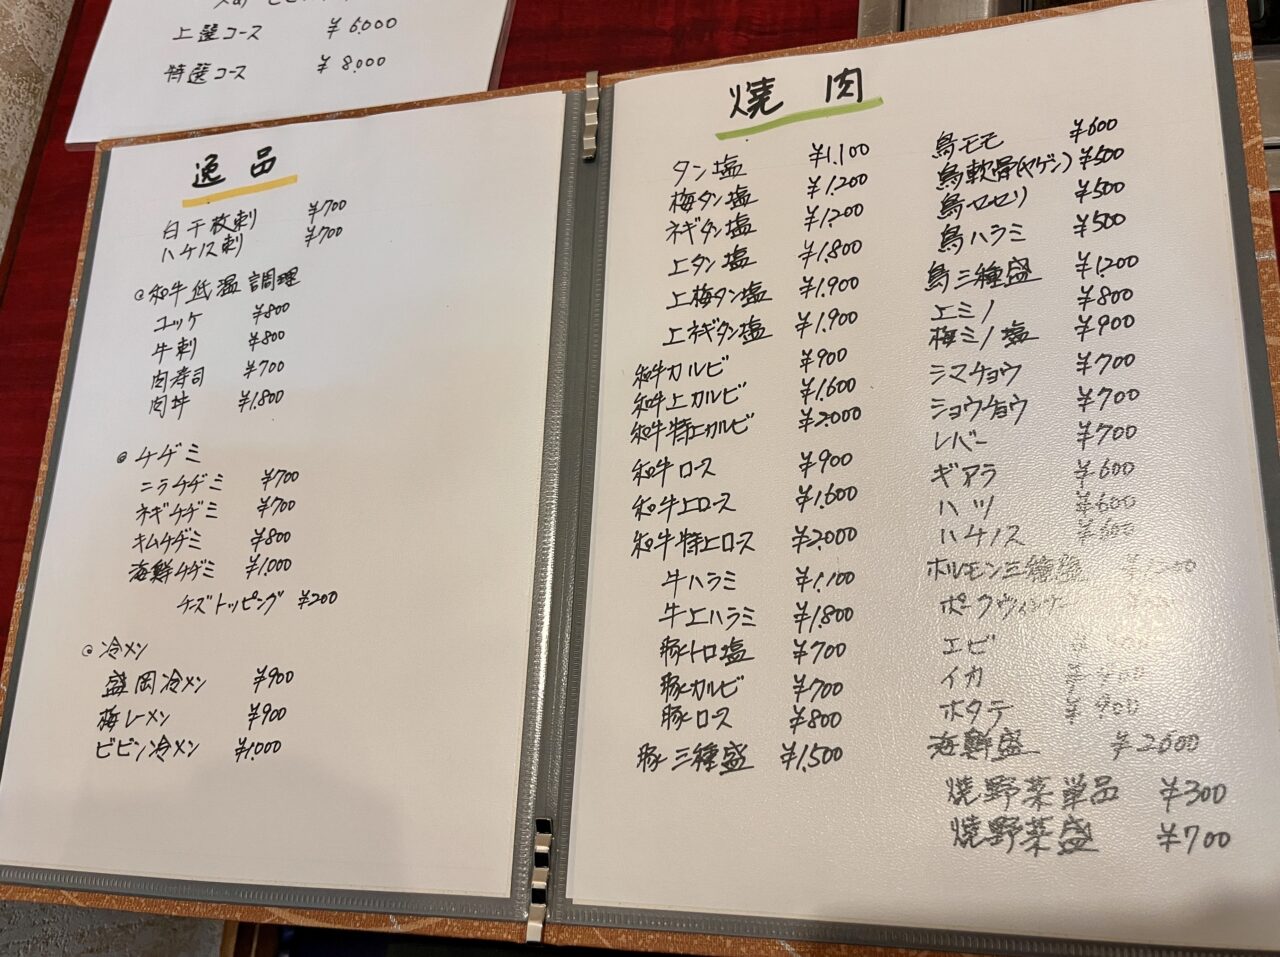 上選コース ¥6,000
特選コース ¥8,000
逸品
白千枚刺 ¥700
ハチノス刺 ¥700
◎和牛低温調理
ユッケ ¥800
牛刺 ¥800
肉寿司 ¥700
肉丼 ¥1,800
◎チヂミ
ニラチヂミ ¥700
ネギチヂミ ¥700
キムチヂミ ¥800
海鮮チヂミ ¥1,000
チーズトッピング ¥200
◎冷メン
盛岡冷メン ¥900
梅レーメン ¥900
ビビン冷メン ¥1,000
焼肉
タン塩 ¥1,100
梅タン塩 ¥1,200
ネギタン塩 ¥1,200
上タン塩 ¥1,800
上梅タン塩 ¥1,900
上ネギタン塩 ¥1,900
和牛カルビ ¥900
和牛上カルビ ¥1,600
和牛特上カルビ ¥2,000
和牛ロース ¥900
和牛上ロース ¥1,600
和牛特上ロース ¥2,000
牛ハラミ ¥1,100
牛上ハラミ ¥1,800
豚トロ塩 ¥700
豚カルビ ¥700
豚ロース ¥800
豚三種盛 ¥1,500
鳥モモ ¥600
鳥軟骨(ヤゲン) ¥500
鳥セセリ ¥500
鳥ハラミ ¥500
鳥三種盛 ¥1,200
上ミノ ¥800
梅ミノ塩 ¥900
シマチョウ ¥700
ショウチョウ ¥700
レバー ¥700
ギアラ ¥600
ハツ ¥600
ハチノス ¥600
ホルモン三種盛
ポークウィンナー
エビ
イカ
ホタテ ¥900
海鮮盛 ¥2600
焼野菜単品 ¥300
焼野菜盛 ¥700